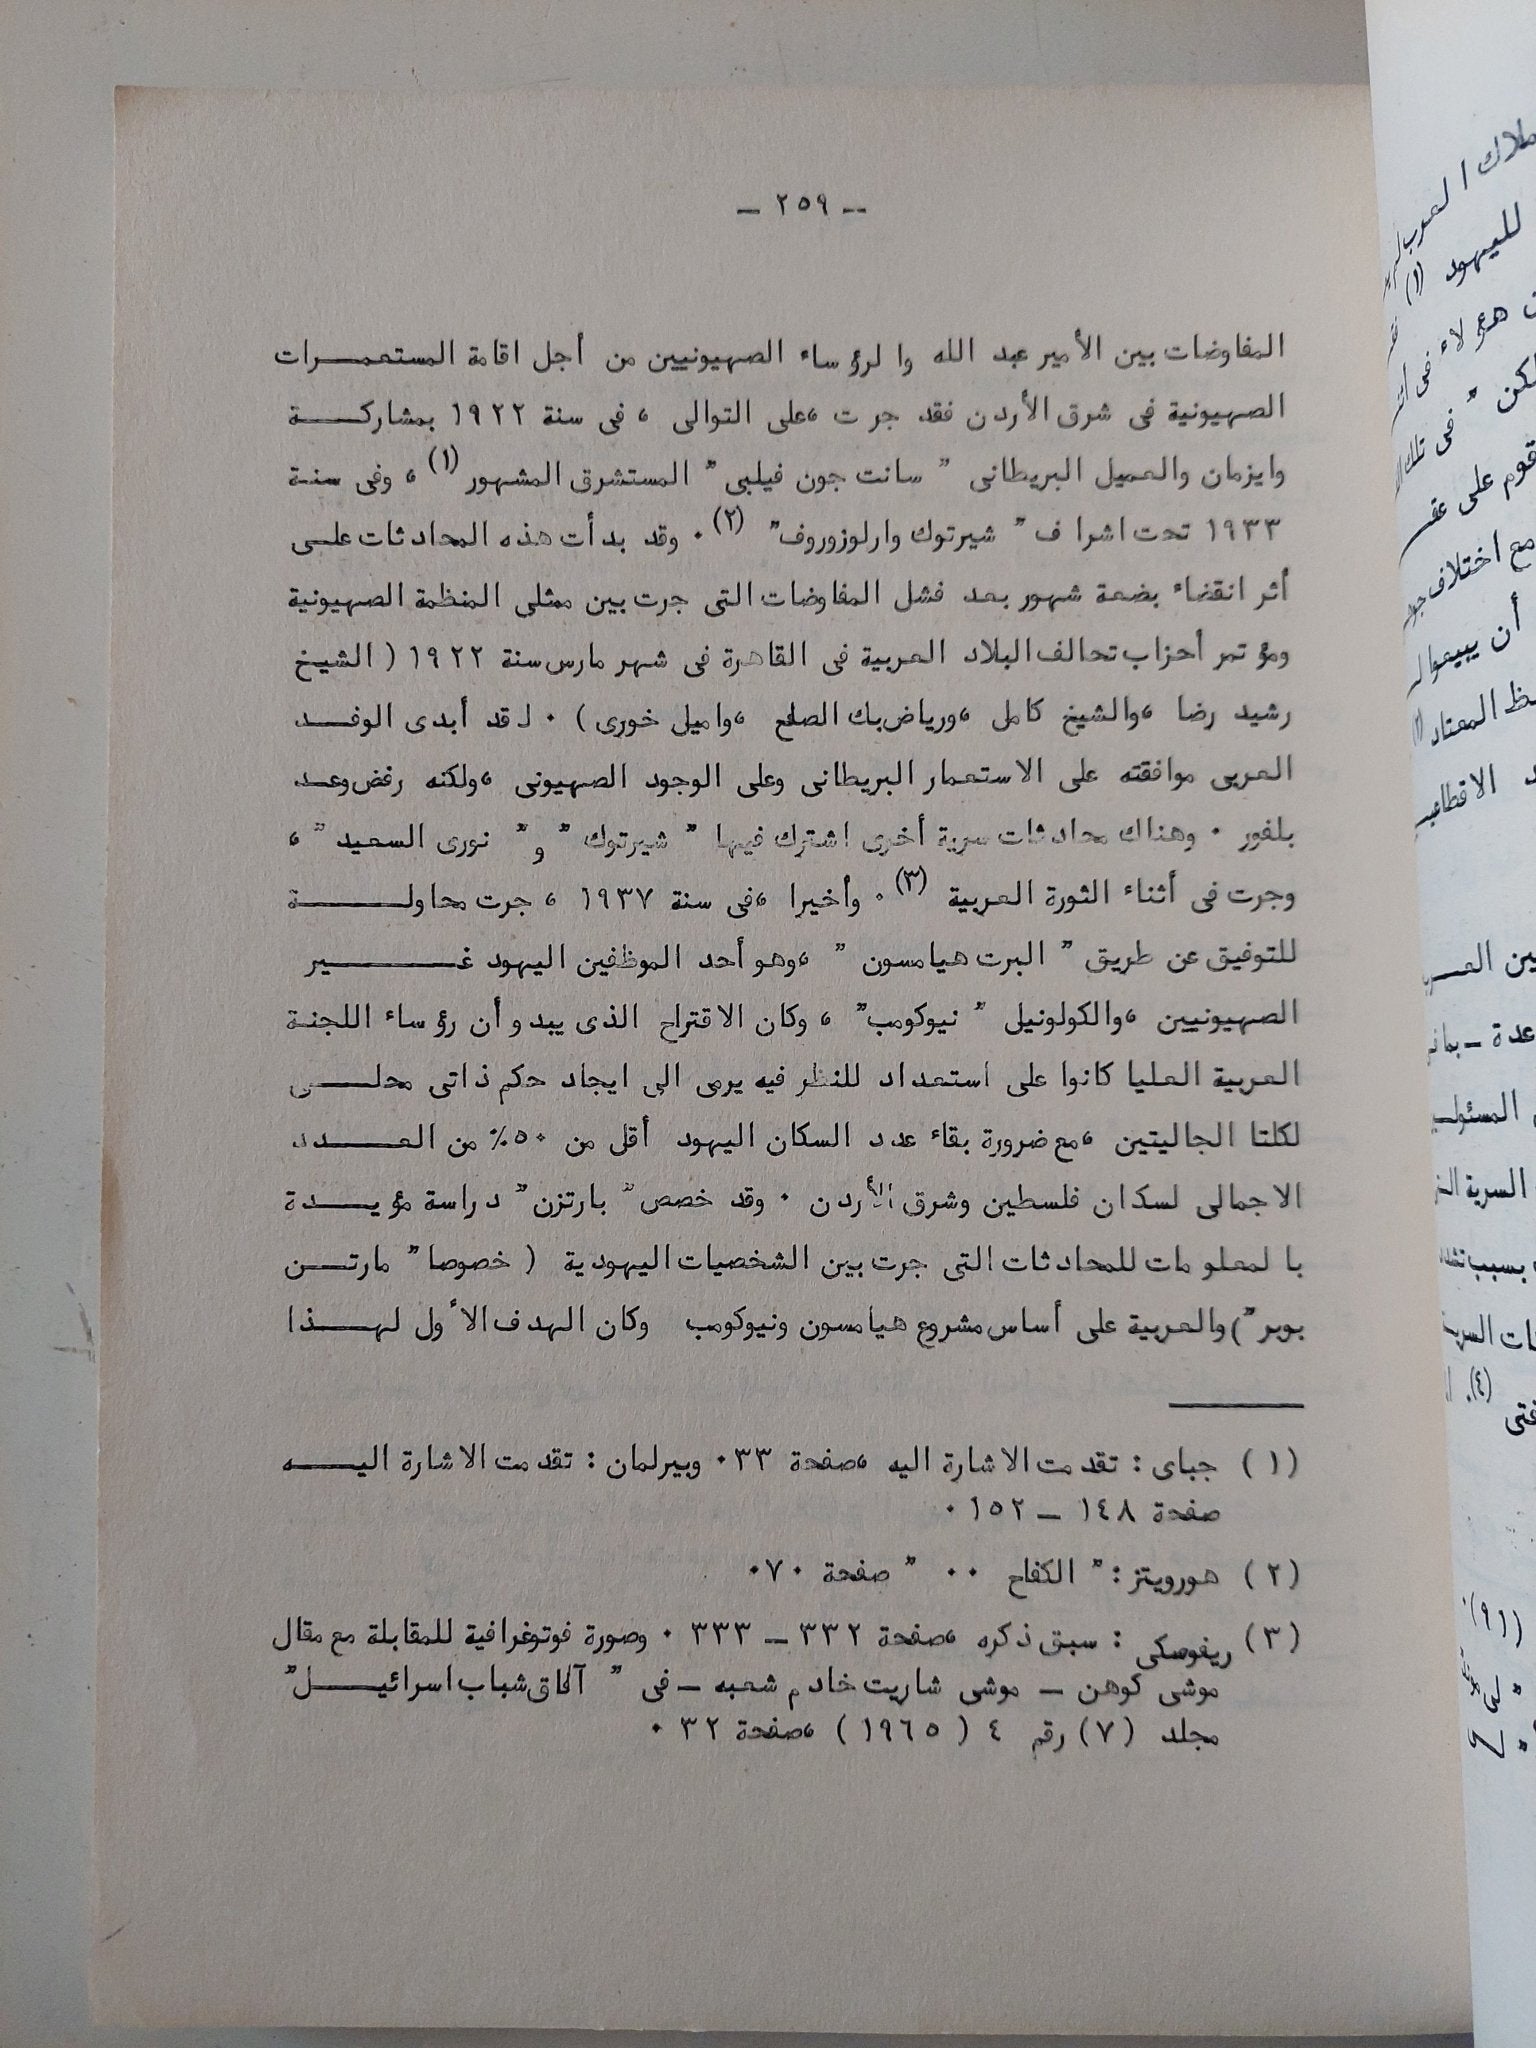 -- ٢٥٩ --
المفاوضات بين الأمير عبد الله والرؤساء الصهيونيين من أجل اقامة المستعمـــرات
الصهيونية فى شرق الأردن فقد جرت ،على التوالى ، فى سنة ١٩٢٢ بمشاركـــة
وايزمان والعميل البريطانى " سانت جون فيلبى" المستشرق المشهور (١) ، وفى سنـة
١٩٣٣ تحت اشراف " شيرتوك وارلوزوروف" (٢)٠ وقد بدأت هذه المحادثات علــى
أثر انقضاء بضعة شهور بعد فشل المفاوضات التى جرت بين ممثلى المنظمة الصهيونية
ومؤتمر أحزاب تحالف البلاد العربية فى القاهرة فى شهر مارس سنة ١٩٢٢ ( الشيـخ
رشيد رضا ،والشيخ كامل ،ورياض بك الصلح ،واميل خورى ) ٠ لقد أبدى الوفـــد
العربى موافقته على الاستعمار البريطانى وعلى الوجود الصهيونى ،ولكنه رفض وعـــد
بلفور ٠ وهناك محادثات سرية أخرى اشترك فيها " شيرتوك " و " نورى السعيد " ،
وجرت فى أثناء الثورة العربية (٣)٠ وأخيرا ،فى سنة ١٩٣٧ ، جرت محاولـــــة
للتوفيق عن طريق " البرت هيامسون " ،وهو أحد الموظفين اليهود غـــــير
الصهيونيين ،والكولونيل " نيوكومب" ، وكان الاقتراح الذى يبدو أن رؤساء اللجنـة
العربية العليا كانوا على استعداد للنظر فيه يرمى الى ايجاد حكم ذاتى محلـــى
لكلتا الجاليتين ،مع ضرورة بقاء عدد السكان اليهود أقل من ٥٠٪ من العــــدد
الاجمالى لسكان فلسطين وشرق الأردن ٠ وقد خصص " بارتزن" دراسة مؤيـــدة
بالمعلومات للمحادثات التى جرت بين الشخصيات اليهودية ( خصوصا " مارتـــن
بوبر") والعربية على أساس مشروع هيامسون ونيوكومب وكان الهدف الأول لهـــذا
(١) جباى : تقدمت الاشارة اليه ،صفحة ٣٣٠ وبيرلمان : تقدمت الاشارة اليـــه
صفحة ١٤٨ ــ ١٥٢٠
(٢) هورويتز : " الكفاح ٠٠ " صفحة ٧٠٠
(٣) ريفوسكى : سبق ذكره ،صفحة ٣٣٢ ــ ٣٣٣ ٠ وصورة فوتوغرافية للمقابلة مع مقال
موشى كوهن ــ موشى شاريت خادم شعبه ــ فى " آفاق شباب اسرائيـــل"
مجلد (٧) رقم ٤ ( ١٩٦٥ ) ،صفحة ٣٢ ٠
للـيهود (١)
هؤلاء فى
فى تلك
قوم على
مع اختلاف
أن يبيعوا
المعتاد
السرية
بسبب
(٤)